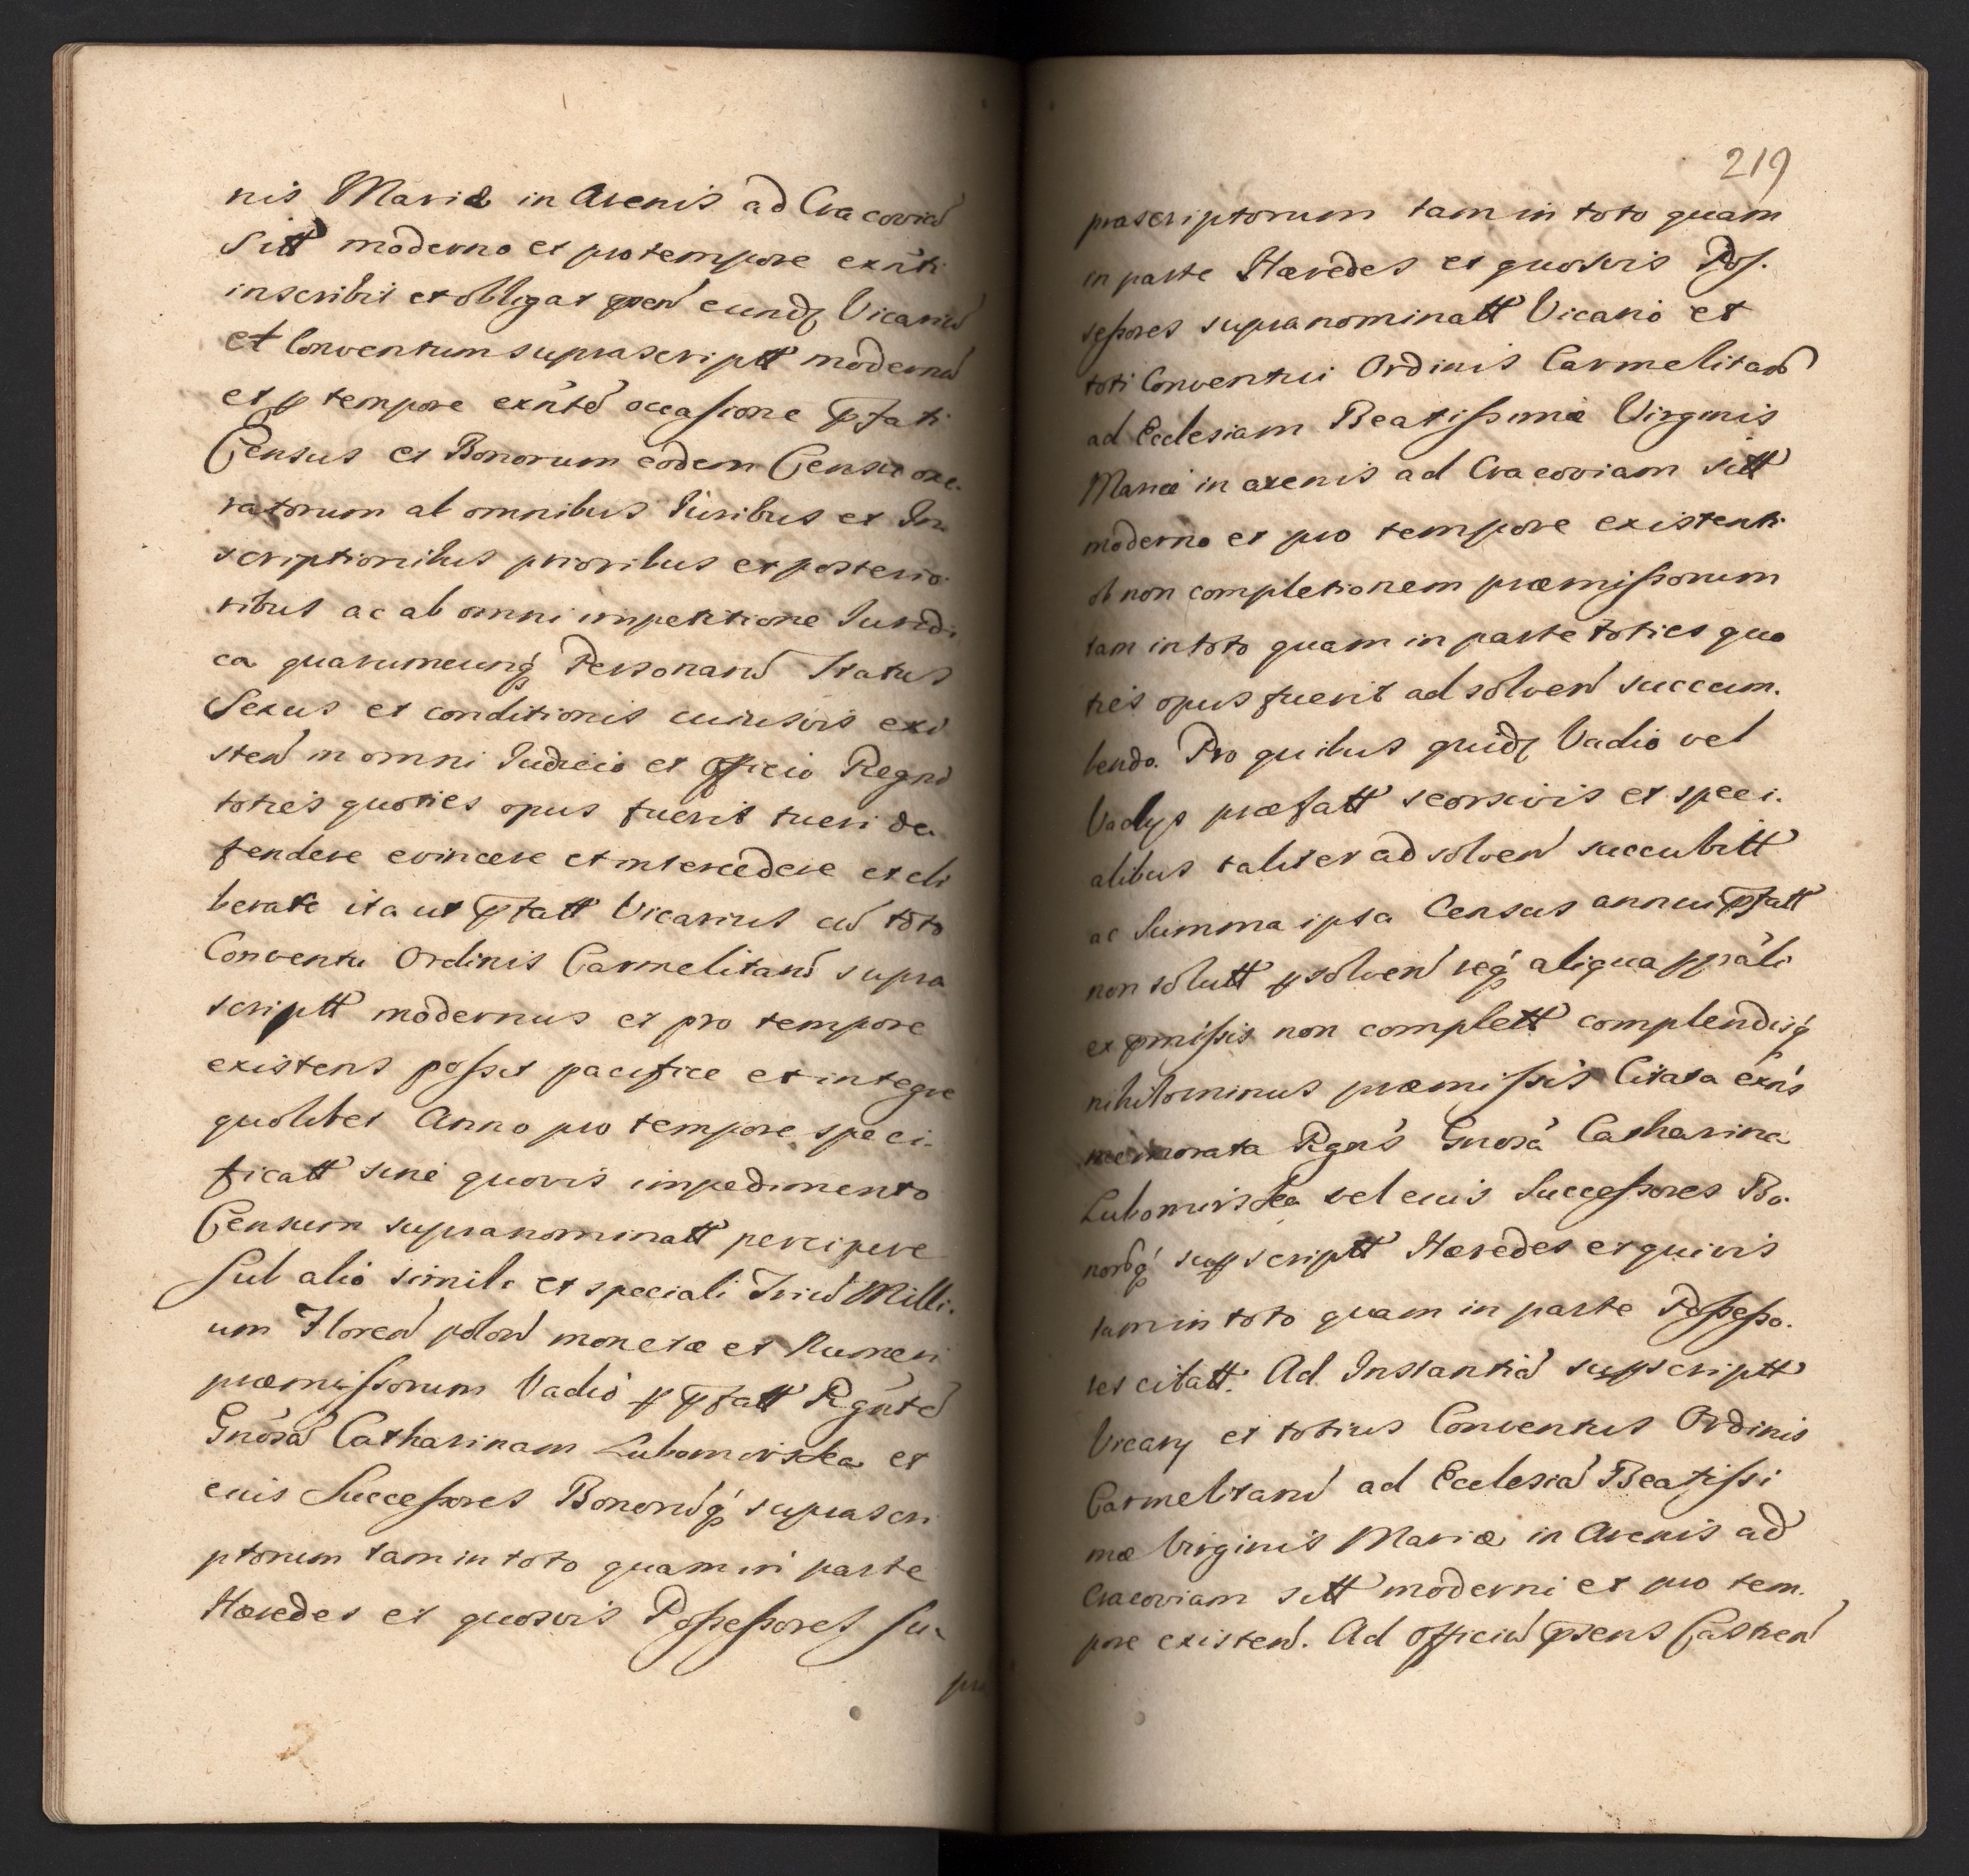 nis Mariæ in Arenis ad Cracoviã
Sitt moderno et pro tempore exñti
inscribit et obligat eundq Vicariũ
et Conventum suprascriptt modernũ
et p tempore exñtẽ occasione pfati
Census et Bonorum eodem Censu one-
ratorum ab omnibus Iuribus et In
scriptionibus prioribus et posterio-
ribus ac ab omni impetitione Juridi
ca quarumcunq Personarũ Status
Sexus et conditionis cuiusvis exi
steñ in omni Iudicio et Officio Regni
toties quoties opus fuerit tueri de-
fendere evincere et intercedere et eli
berare ita ut pfatt Vicarius cũ toto
Conventu Ordinis Carmelitarũ supra
scriptt modernus et pro tempore
existens posset pacifice et integre
quolibet Anno pro tempore speci-
ficatt sine quovis impedimento
Censum supranominatt percipere
Sub alio simili et speciali Triũ Milli-
um Floreñ poloñ monetæ et Numeri
præmissorum Vadio p pfatt Rgñtẽ
Gñosã Catharinam Lubomirska et
eius Successores Bonorũq suprascri
ptorum tam in toto quam in parte
Hæredes et quosvis Possessores su-
pra
219
præscriptorum tam in toto quam
in parte Hæredes et quosvis Pos-
sessores supranominatt Vicario et
toti Conventui Ordinis Carmelitarũ
ad Ecclesiam Beatissimæ Virginis
Mariæ in arenis ad Cracoviam sitt
moderno et pro tempore existenti
ob non completionem præmissorum
tam in toto quam in parte toties quo
ties opus fuerit ad solveñ succum-
bendo. Pro quibus quidq Vadio vel
Vadys præfatt seorsivis et speci-
alibus taliter ad solveñ succubitt
ac Summa ipsa Census annui pfatt
non solutt p solveñ req aliqua ppräli
ex pmissis non complett complendisq
nihilominus præmissis Citata exñs
memorata Rgñs Gnosã Catharina
Lubomirska vel eius Successores Bo-
norũq supscriptt Hæredes et quivis
tam in toto quam in parte Possesso-
res citatt. Ad Instantiã supscriptt
Vicary et totius Conventus Ordinis
Carmelitarũ ad Ecclesiã Beatissi
mæ Virginis Mariæ in Arenis ad
Cracoviam sitt moderni et pro tem-
pore existeñ. Ad officiũ pñsens Castreñ